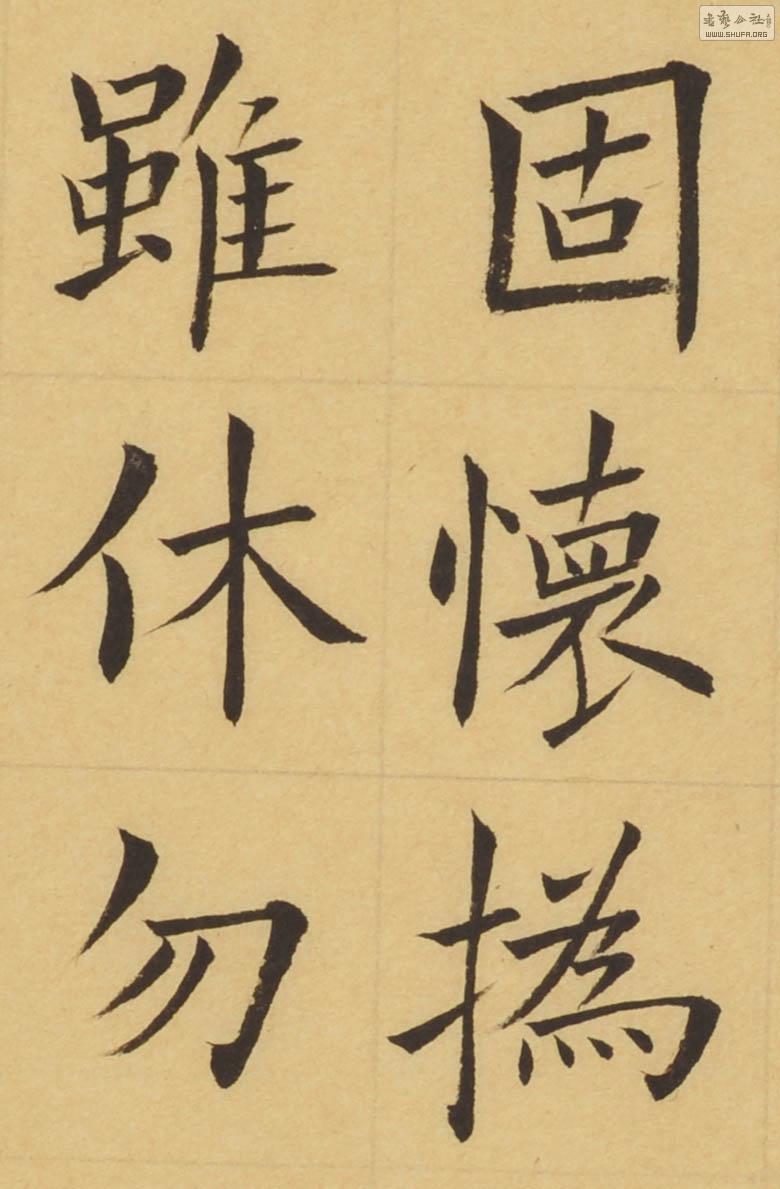 固懷撝
雖休勿
WWW.SHUFA.ORG